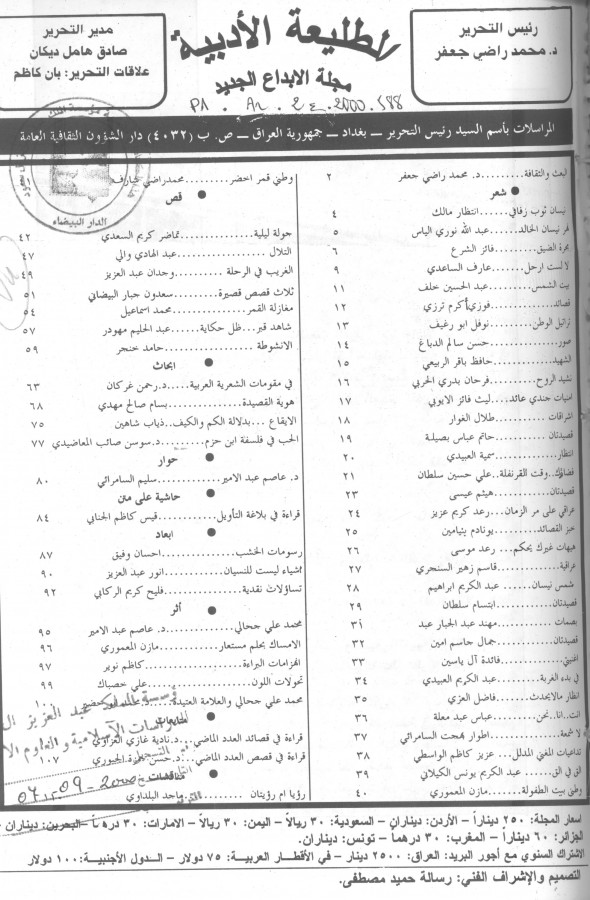 رئيس التحرير
د. محمد راضي جعفر
الطليعة الأدبية
مجلة الابداع الجديد
مدير التحرير
صادق هامل ديكان
علاقات التحرير: بان كاظم
PA . Ar. 24.2000.588
المراسلات بأسم السيد رئيس التحرير ــ بغداد ــ جمهورية العراق ــ ص. ب (٤٠٣٢) دار الشؤون الثقافية العامة
البعث والثقافة.........د. محمد راضي جعفر ٢
شعر
نيسان ثوب زفافي......انتظار مالك ٤
قمر نيسان الخالد......عبد الله نوري الياس ٥
مجرة الضيق......فائز الشرع ٦
لا لست ارحل......عارف الساعدي ٩
بيت الشمس......عبد الحسين خلف ١١
قصائد......فوزي أكرم ترزي ١٢
تراتيل الوطن......نوفل ابو رغيف ١٣
صور......حسن سالم الدباغ ١٤
الشهيد......حافظ باقر الربيعي ١٥
نشيد الروح......فرحان بدري الحربي ١٦
امنيات جندي عائد......ليث فائز الايوبي ١٧
اشراقات......طلال الغوار ١٨
قصيدتان......حاتم عباس بصيلة ١٩
انتظار......سمية العبيدي ٢٠
فضاؤك.. وقت للقرنفلة..علي حسين سلطان ٢١
قصيدتان......هيثم عيسى ٢٣
عراقي على مر الزمان...رعد كريم عزيز ٢٤
خبز القصائد......يونادم بنيامين ٢٥
هيهات غيرك يحكم... رعد موسى ٢٦
عراقية......قاسم زهير السنجري ٢٧
شمس نيسان......عبد الكريم ابراهيم ٢٨
قصيدتان......ابتسام سلطان ٢٩
بصمات......مهند عبد الجبار عبد ٣١
قصيدتان......جمال جاسم امين ٣٢
اغنيتي......فائدة آل ياسين ٣٣
في بدء الغربة......عبد الكريم العبيدي ٣٤
انتظار مالايحدث......فاضل العزي ٣٥
انت..انا..نحن......عباس عبد معلة ٣٦
لا شمعة......اطوار بهجت السامرائي ٣٧
تداعيات المغني المدلل...عزيز كاظم الواسطي ٣٨
الق في الق......عبد الكريم يونس الكيلاني ٣٩
وطني بيت الطفولة......مازن المعموري ٤٠
وطني قمر اخضر......محمد راضي
قص
جولة ليلية......تماضر كريم السعدي ٤٢
التلال......عبد الهادي والي ٤٧
الغريب في الرحلة......وجدان عبد العزيز ٤٩
ثلاث قصص قصيرة......سعدون جبار البيضاني ٥١
مغازلة القمر......محمد اسماعيل ٥٤
شاهد قبر...ظل حكاية...عبد الحليم مهودر ٥٧
الانشوطة......حامد خنجر ٥٩
ابحاث
في مقومات الشعرية العربية......د.رحمن غركان ٦٣
هوية القصيدة......بسام صالح مهدي ٦٨
الايقاع ...بدلالة الكم والكيف..ذياب شاهين ٧٥
الحب في فلسفة ابن حزم......د.سوسن صائب المعاضيدي ٧٧
حوار
د. عاصم عبد الامير......سليم السامرائي ٨٠
حاشية على متن
قراءة في بلاغة التأويل......قيس كاظم الجنابي ٨٤
ابعاد
رسومات الخشب......احسان وفيق ٨٧
أشياء ليست للنسيان......انور عبد العزيز ٩٠
تساؤلات نقدية......فليح كريم الركابي ٩٢
أثر
محمد علي جحالي......د. عاصم عبد الامير ٩٥
الامساك بحلم مستعار......مازن المعموري ٩٦
انهزامات البراءة......كاظم نوير ٩٧
تحولات اللون......علي خصباك ٩٩
محمد علي جحالي والعلامة العتيدة... ١٠٠
متابعات
قراءة في قصائد العدد الماضي......د.نادية غازي العزاوي
قراءة في قصص العدد الماضي......د.حسن الجبوري ١٠٧
رؤيا ام رؤيتان......ماجد البلداوي
الدار البيضاء
مؤسسة الملك عبد العزيز آل
للدراسات الاسلامية والعلوم الا
اسعار المجلة: ٢٥٠ ديناراً – الأردن: ديناران – السعودية: ٣٠ ريالاً – اليمن: ٣٠ ريالاً – الامارات: ٣٠ درهماً – البحرين: ديناران –
الجزائر: ٦٠ ديناراً – المغرب: ٣٠ درهماً – تونس: ديناران.
الاشتراك السنوي مع أجور البريد: العراق: ٢٥٠٠ دينار – في الأقطار العربية: ٧٥ دولار – الدول الأجنبية: ١٠٠ دولار
التصميم والإشراف الفني: رسالة حميد مصطفى.